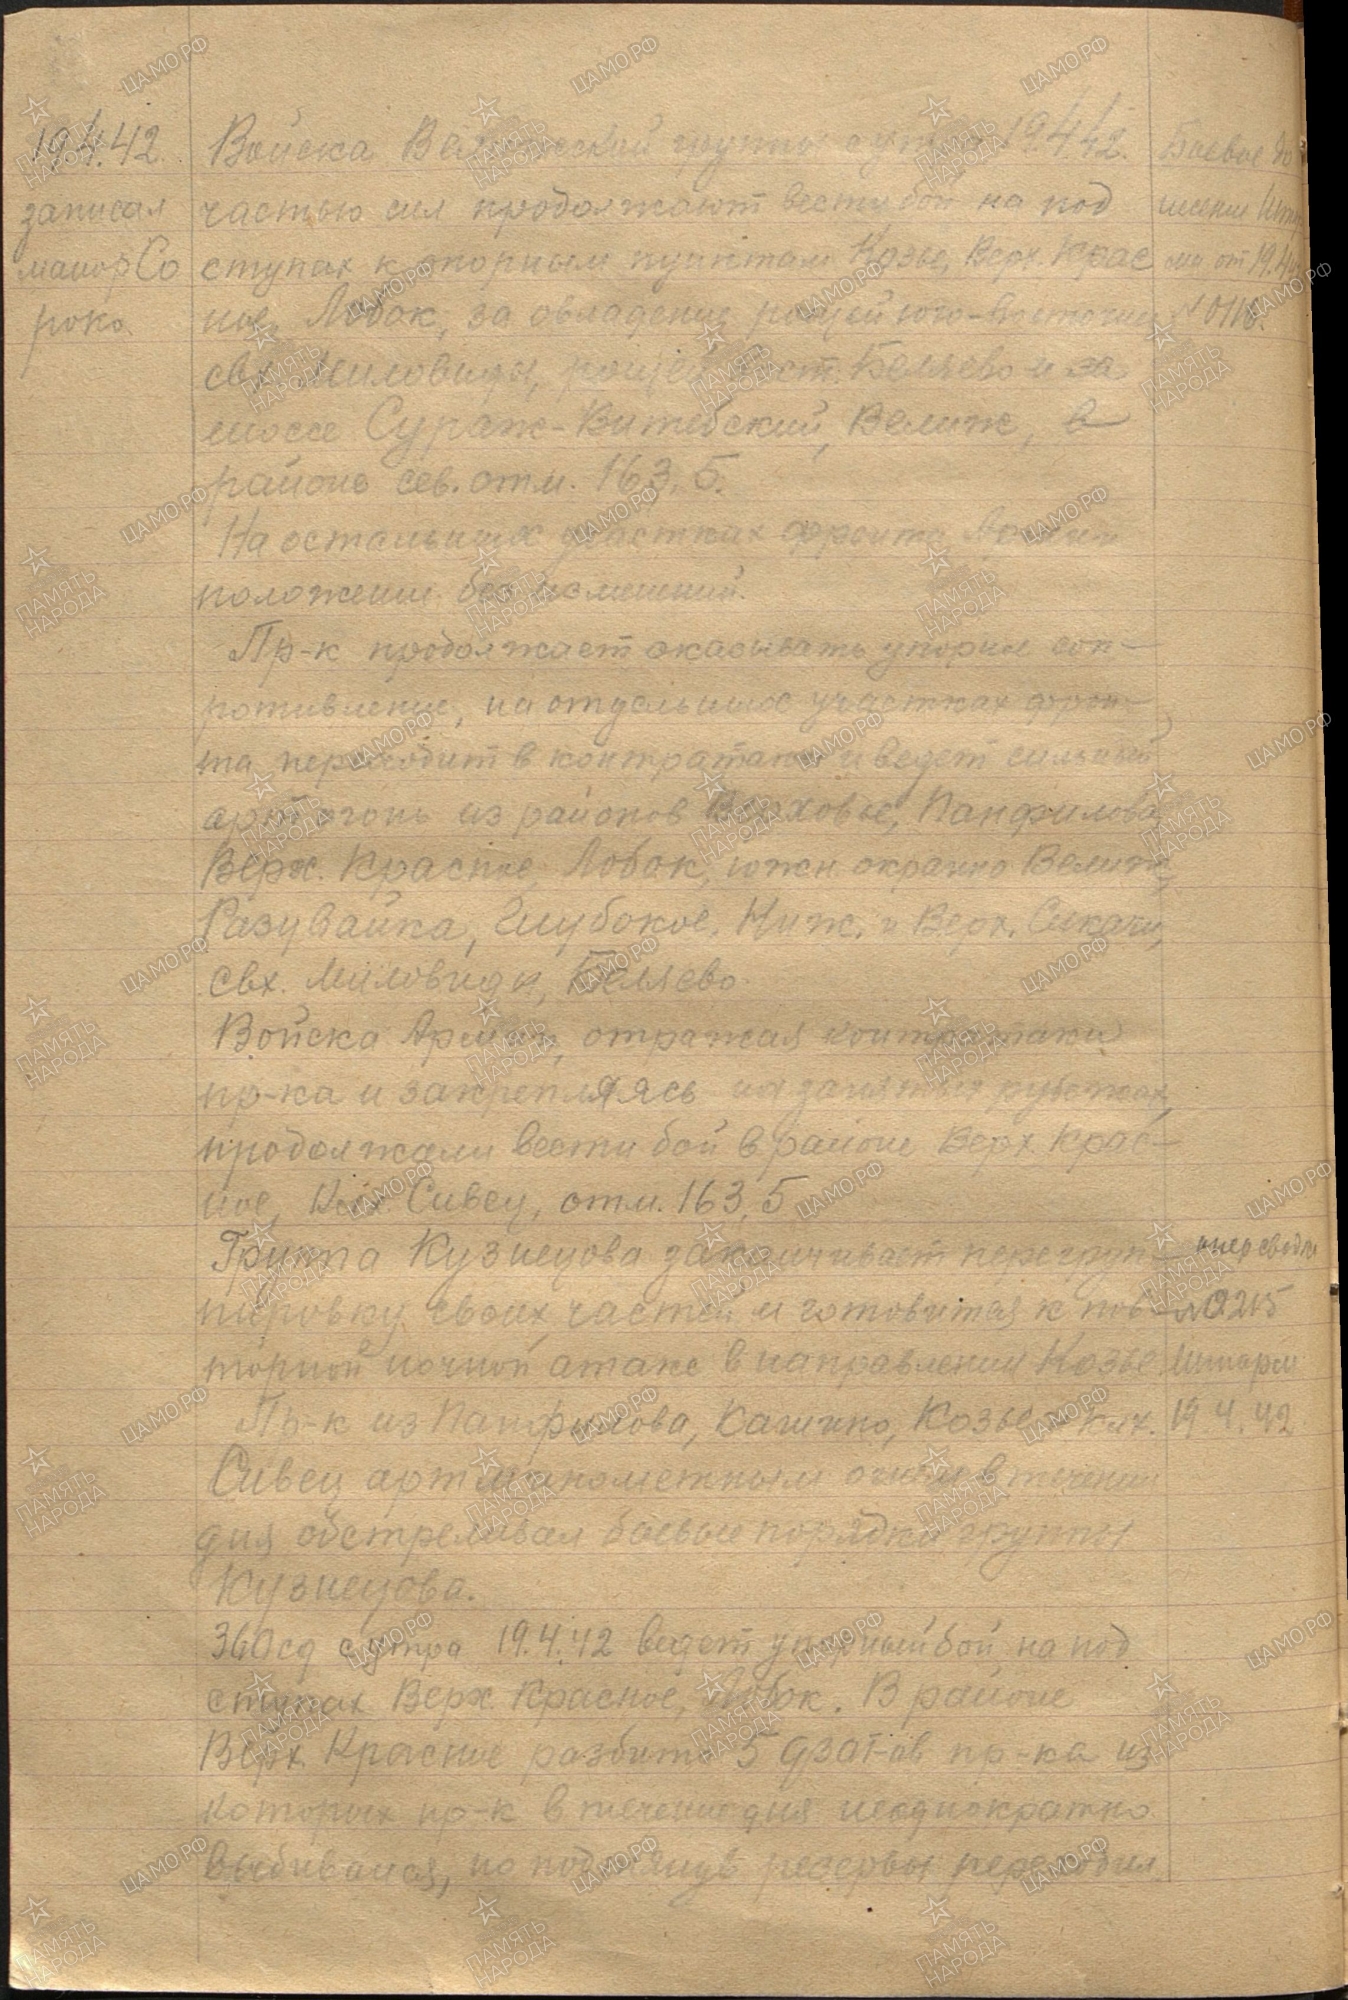 19.4.42.
записал
майор Со
роко.
Войска Велижской группы с утра 19.4.42.
частью сил продолжают вести бой на под
ступах к опорным пунктам Козье, Верх. Крас
ное, Лобак, за овладение рощей юго-восточн
свх. Миловиды, рощей вост. Беляево и за
шоссе Сураж-Витебский, Велиж, в
районе сев. отм. 163,5.
На остальных участках фронта Армии
положение без изменений.
Пр-к продолжает оказывать упорное соп-
ротивление, на отдельных участках фрон-
та переходит в контратаки и ведет сильный
артогонь из районов Верховье, Панфилова,
Верх. Красное, Лобак, южн окраина Велиж,
Разувайка, Глубокое, Ниж. и Верх. Секачи,
свх. Миловиды, Беляево.
Войска Армии, отражая контратаки
пр-ка и закрепляясь на занятых рубежах,
продолжали вести бой в районе Верх Крас-
ное, Клх. Сивец, отм. 163,5
Группа Кузнецова заканчивает перегруп-
пировку своих частей и готовится к пов-
торной ночной атаке в направлении Козье.
Пр-к из Панфилова, Кашино, Козье и клх.
Сивец артминометным огнем в течении
дня обстреливал боевые порядки группы
Кузнецова.
360сд с утра 19.4.42 ведет упорный бой на под
ступах Верх Красное, Лобок. В районе
Верх Красное разбито 5 дзот-ов пр-ка из
которых пр-к в течение дня неоднократно
выбивался, но подтянув резервы переходил
Боевое до
несение Шта
ма от 19.4.42
№ 0116.
опер сводка
№0215
Штарм
19.4.42
ЦАМО.РФ
ПАМЯТЬ
НАРОДА